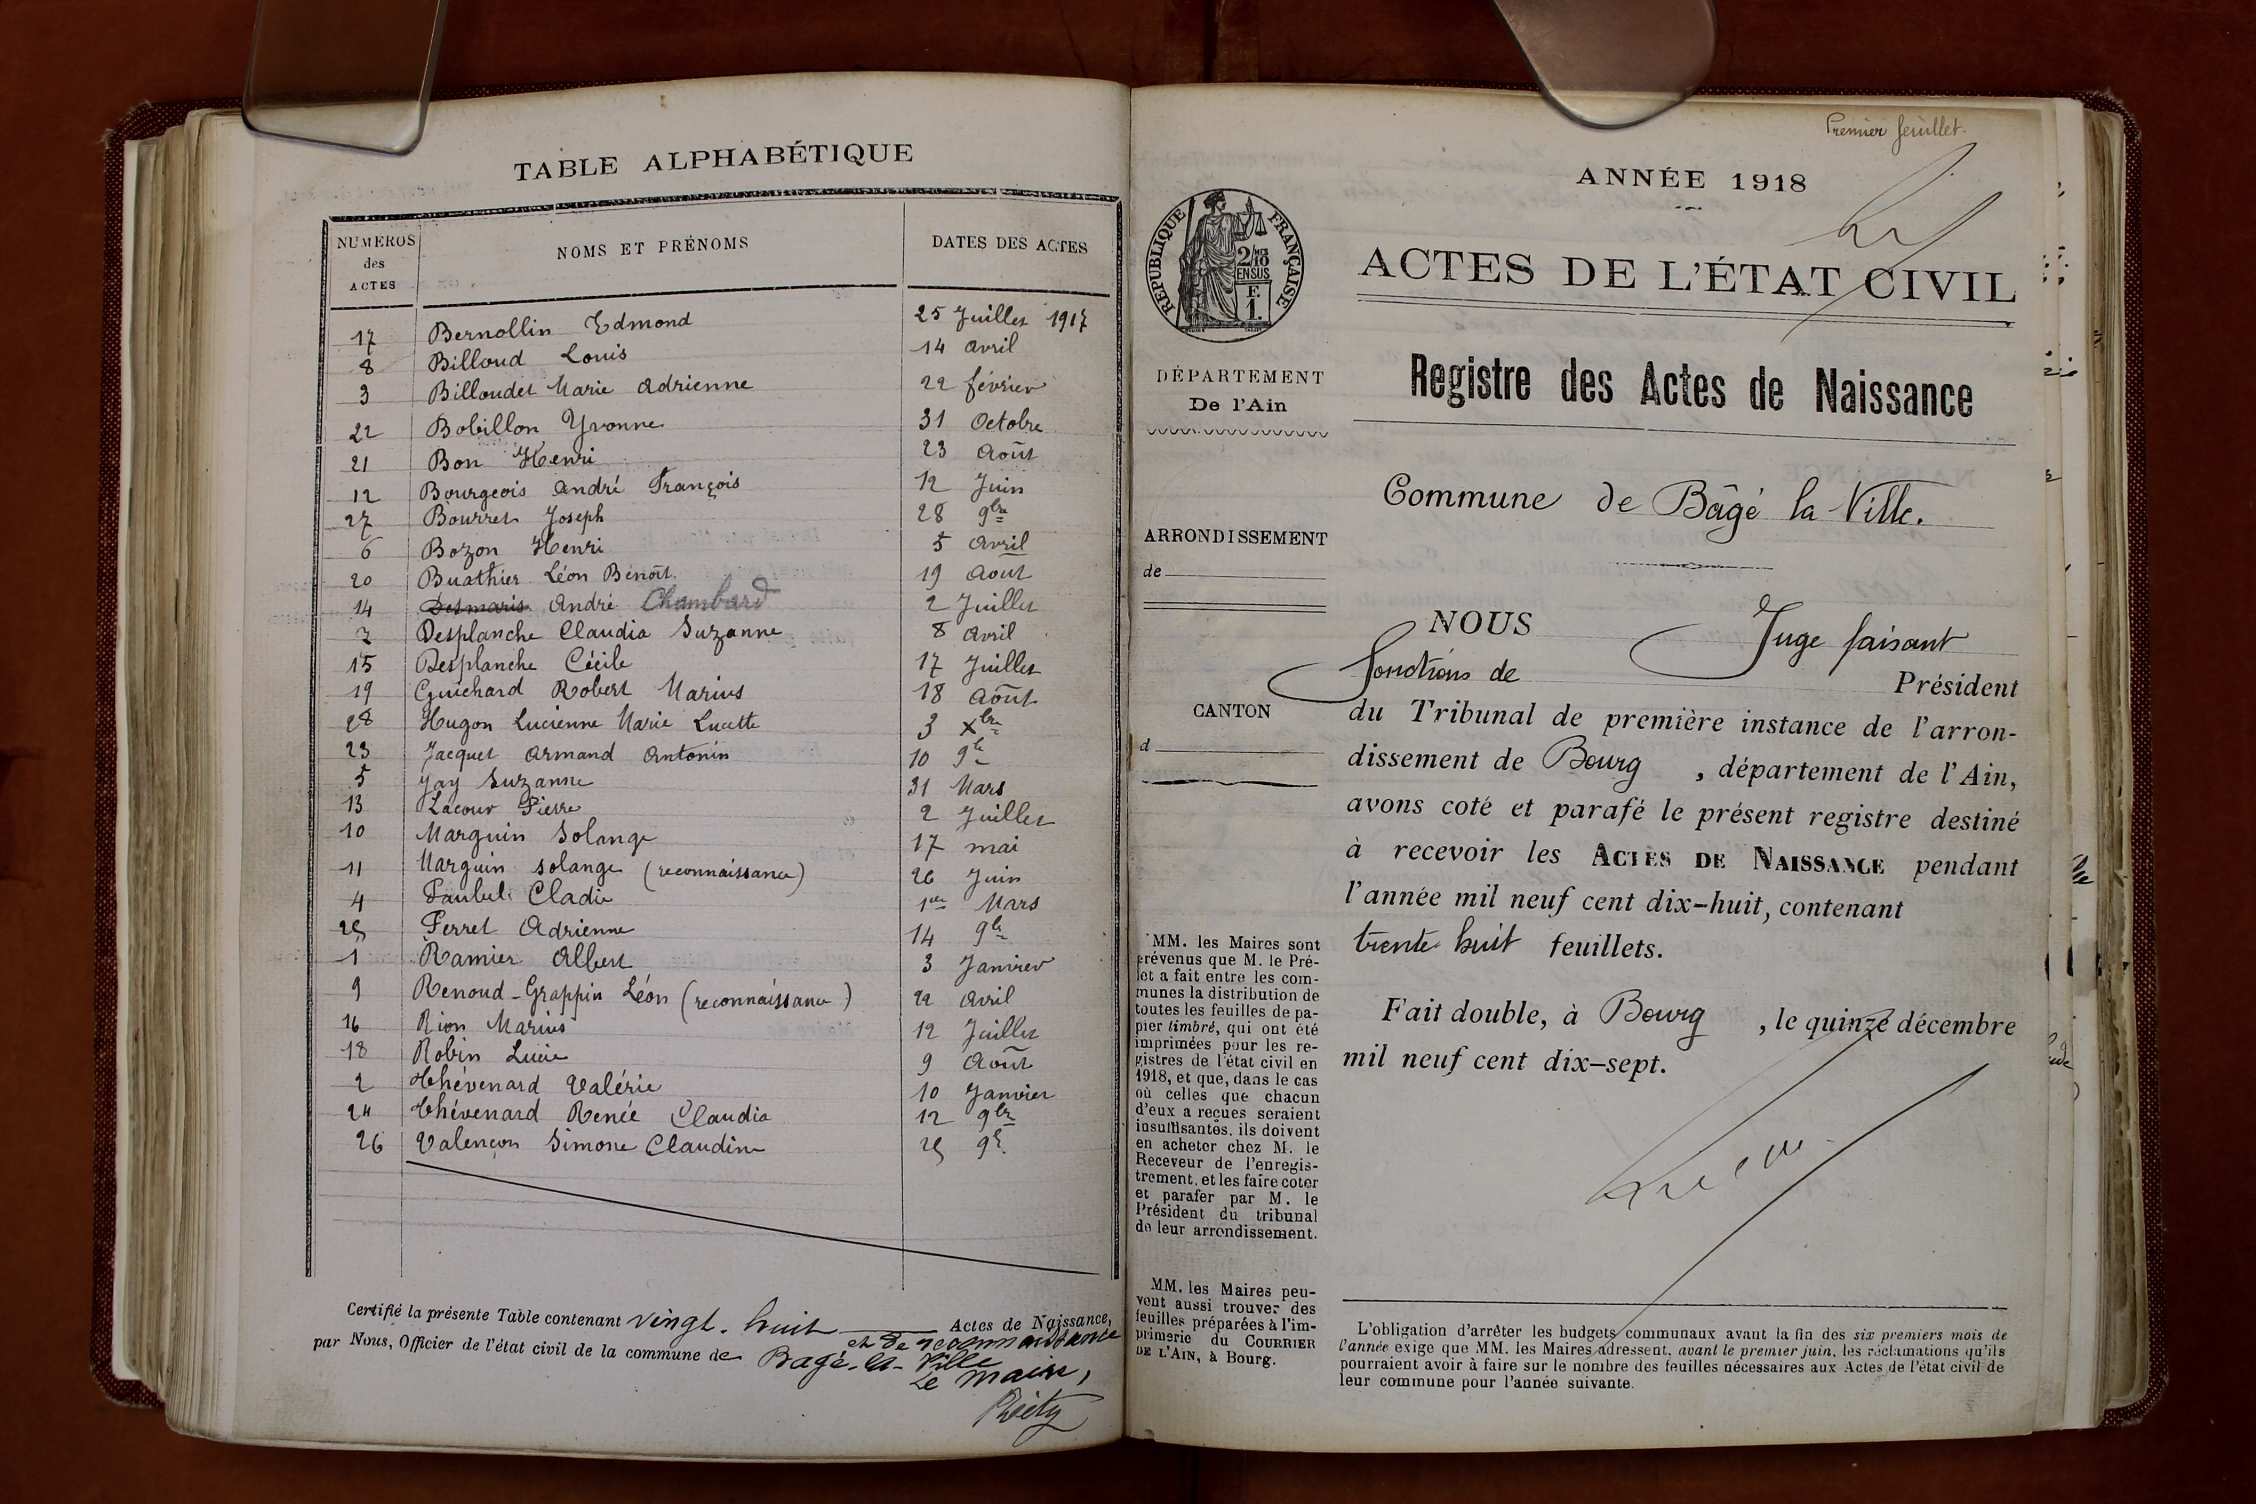 TABLE ALPHABÉTIQUE
NUMÉROS
des
ACTES
NOMS ET PRÉNOMS
DATES DES ACTES
17 Bernollin Edmond 25 Juillet 1917
8 Billoud Louis 14 avril
3 Billoudet Marie Adrienne 22 février
22 Bobillon Yvonne 31 Octobre
21 Bon Henri 23 Août
12 Bourgeois André François 12 Juin
27 Bourret Joseph 28 9bre
6 Bozon Henri 5 avril
20 Buathier Léon Benoît 19 Aout
14 Desmaris André Chambard 2 Juillet
7 Desplanche Claudia Suzanne 8 avril
15 Desplanche Cécile 17 Juillet
19 Guichard Robert Marius 18 Août
28 Hugon Lucienne Marie Lucette 3 Xbre
23 Jacquet Armand Antonin 10 9bre
5 Jay Suzanne 31 Mars
13 Lacour Pierre 2 Juillet
10 Marguin Solange 17 mai
11 Marguin Solange (reconnaissance) 26 Juin
4 Cladie 1er Mars
25 Perret Adrienne 14 9bre
1 Ramier Albert 3 Janvier
9 Renoud-Grappin Léon (reconnaissance) 22 avril
16 Rion Marius 12 Juillet
18 Robin Lucie 9 Août
2 Thévenard Valérie 10 Janvier
24 Thévenard Renée Claudia 12 9bre
26 Valençon Simone Claudine 25 9bre
Certifié la présente Table contenant vingt-huit Actes de Naissance,
et de reconnaissance
par Nous, Officier de l'état civil de la commune de Bagé-la-Ville
Le Maire,
Premier feuillet.
ANNÉE 1918
ACTES DE L'ÉTAT CIVIL
RÉPUBLIQUE FRANÇAISE
2/10
EN SUS
F.
1.
DÉPARTEMENT
De l'Ain
ARRONDISSEMENT
de
CANTON
d
Registre des Actes de Naissance
Commune de Bâgé la Ville.
NOUS Juge faisant
fonctions de Président
du Tribunal de première instance de l'arron-
dissement de Bourg, département de l'Ain,
avons coté et parafé le présent registre destiné
à recevoir les ACTES DE NAISSANCE pendant
l'année mil neuf cent dix-huit, contenant
trente huit feuillets.
Fait double, à Bourg, le quinze décembre
mil neuf cent dix-sept.
MM. les Maires sont
prévenus que M. le Pré-
fet a fait entre les com-
munes la distribution de
toutes les feuilles de pa-
pier timbré, qui ont été
imprimées pour les re-
gistres de l'état civil en
1918, et que, dans le cas
où celles que chacun
d'eux a reçues seraient
insuffisantes, ils doivent
en acheter chez M. le
Receveur de l'enregis-
trement, et les faire coter
et parafer par M. le
Président du tribunal
de leur arrondissement.
MM. les Maires peu-
vent aussi trouver des
feuilles préparées à l'im-
primerie du COURRIER
DE L'AIN, à Bourg.
L'obligation d'arrêter les budgets communaux avant la fin des six premiers mois de
l'année exige que MM. les Maires adressent, avant le premier juin, les réclamations qu'ils
pourraient avoir à faire sur le nombre des feuilles nécessaires aux Actes de l'état civil de
leur commune pour l'année suivante.